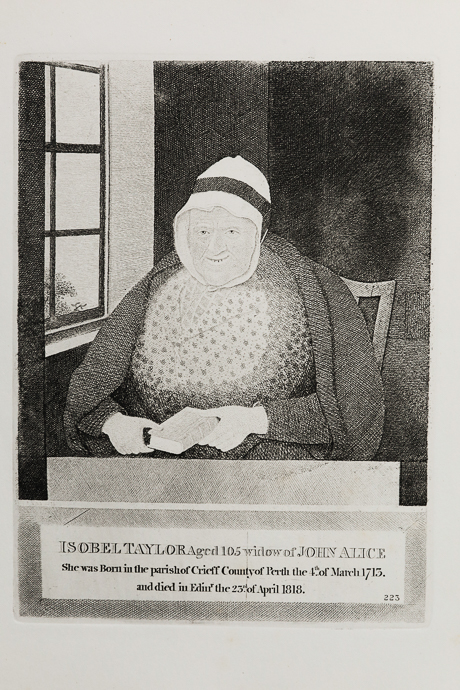 ISOBEL TAYLOR Aged 105 widow of JOHN ALICE
She was Born in the parish of Crieff County of Perth the 4th of March 1713.
and died in Edinr the 23d of April 1818.
223